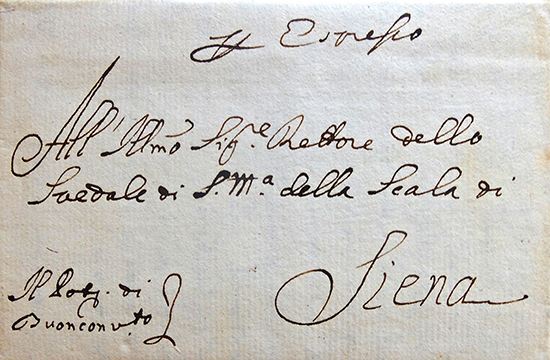 Espresso
All' Illmo Sig.re Rettore dello
Spedale di S. M.a della Scala di
Siena
Il Pot. di
Buonconv.to